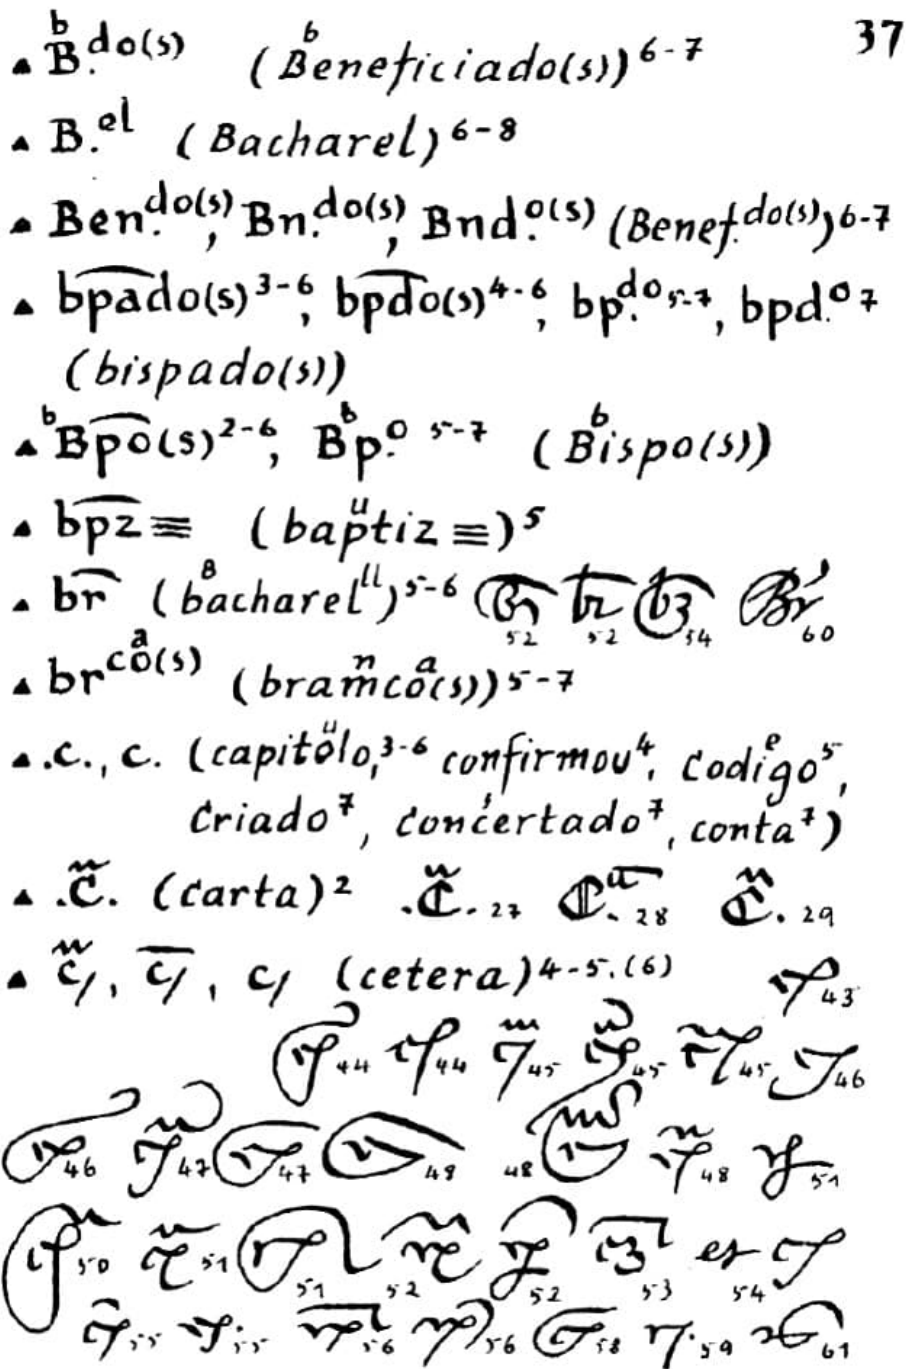 37
▲ B.ᵇ ᵈᵒ⁽ˢ⁾ (Bᵇeneficiado(s))⁶⁻⁷
▲ B.ᵉˡ (Bacharel)⁶⁻⁸
▲ Ben.ᵈᵒ⁽ˢ⁾, Bn.ᵈᵒ⁽ˢ⁾, Bnd.ᵒ⁽ˢ⁾ (Benef.ᵈᵒ⁽ˢ⁾)⁶⁻⁷
▲ b͡pado(s)³⁻⁶, b͡pdo(s)⁴⁻⁶, bp.ᵈᵒ ⁵⁻⁷, bpd.ᵒ ⁷
(bispado(s))
▲ ᵇB͡po(s)²⁻⁶, Bᵇp.ᵒ ⁵⁻⁷ (Bᵇispo(s))
▲ b͡pz≡ (bapᵘtiz≡)⁵
▲ b͡r (bᴮacharelˡˡ)⁵⁻⁶ 52 52 54 60
▲ brᶜᵒᵃ⁽ˢ⁾ (bramⁿcoᵃ(s))⁵⁻⁷
▲ .c., c. (capitoᵘlo,³⁻⁶ confirmou⁴, Codiᵉgo⁵,
Criado⁷, Concertado⁷, conta⁷)
▲ .C̃. (Carta)² .C̃. 27 C. 28 C̃. 29
▲ c̃/, c̅/, c/ (cetera)⁴⁻⁵·⁽⁶⁾ 43
44 44 45 45 45 46
46 47 47 48 48 48 51
50 51 51 52 52 53 et 54
55 55 56 56 58 59 61